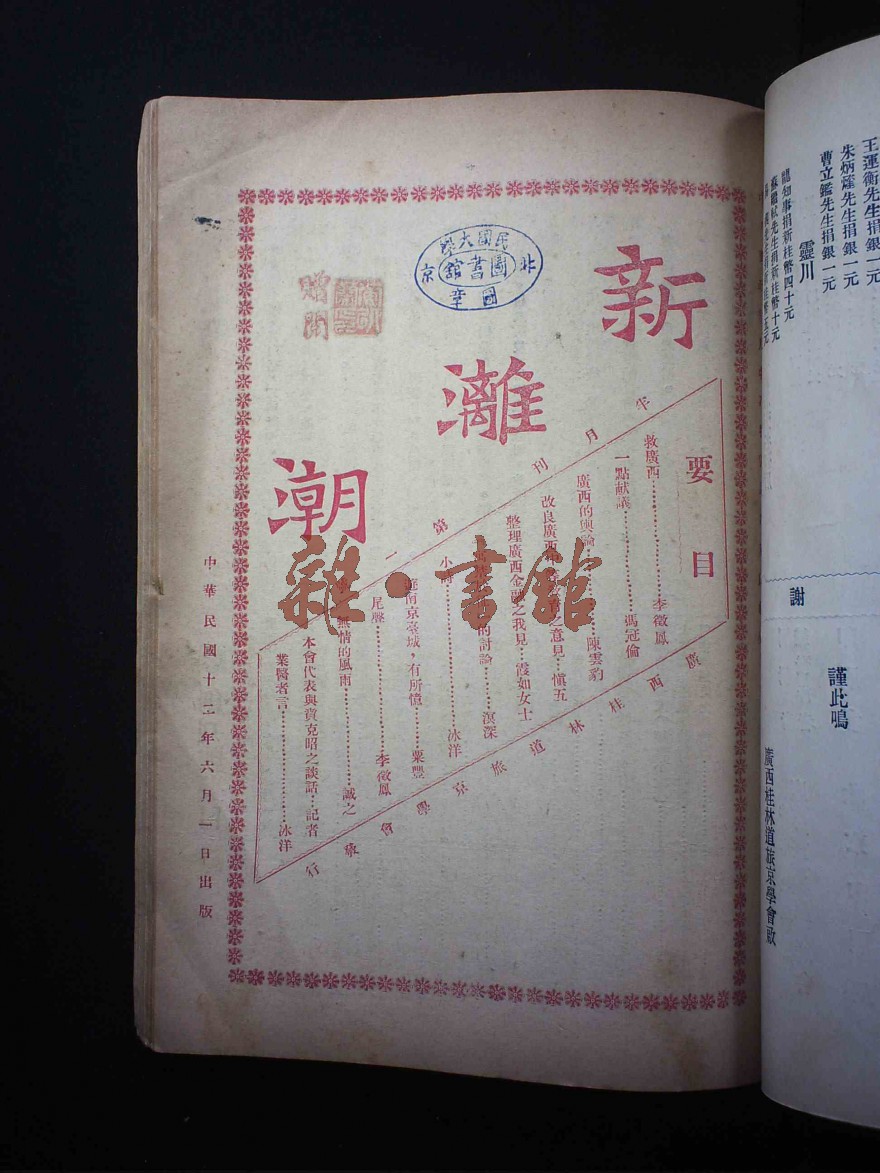 新灕潮
半月刊第
要目
救廣西……李徵鳳
一點献議……馮冠倫
廣西的輿論……陳雲豹
改良廣西……之意見…愼五
整理廣西金融之我見…霞如女士
的討論……溟深
小……冰洋
遊南京臺城，有所憶……粟豐
尾聲……李徵鳳
無情的風雨……誠之
本會代表與賁克昭之談話…記者
業醫者言……冰洋
廣西桂林道旅京學會發行
中華民國十二年六月一日出版
北京民國大學圖書館圖章
贈閱
雜·書館
王運衡先生捐銀一元
朱炳
先生捐銀一元
曹立鑑先生捐銀一元
靈川
知事捐新桂幣四十元
蘇
先生捐新桂幣十元
謹此鳴
謝
廣西桂林道旅京學會啟